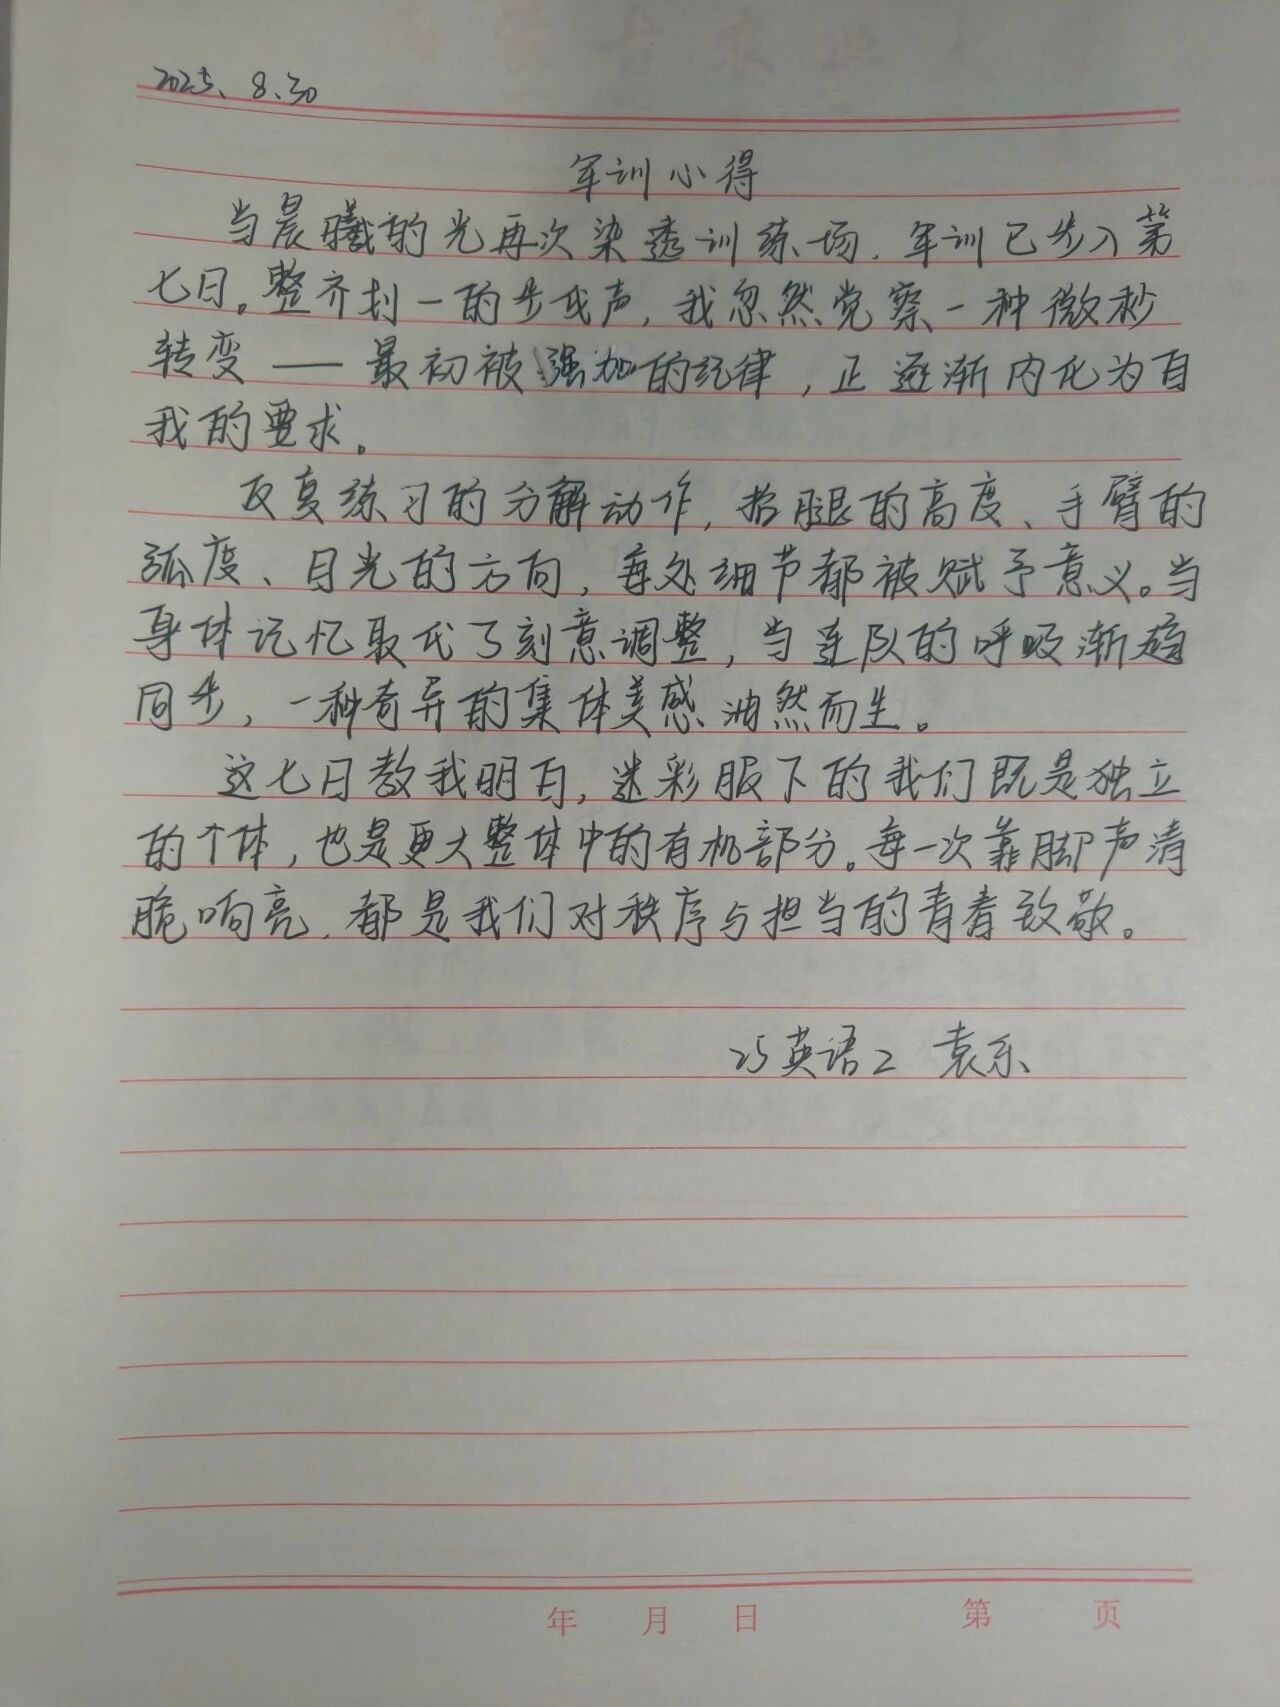 2025、8、30
军训心得
当晨曦的光再次染透训练场，军训已步入第
七日。整齐划一的步伐声，我忽然觉察一种微秒
转变——最初被强加的纪律，正逐渐内化为自
我的要求。
反复练习的分解动作，抬腿的高度、手臂的
弧度、目光的方向，每处细节都被赋予意义。当
身体记忆取代了刻意调整，当连队的呼吸渐趋
同步，一种奇异的集体美感油然而生。
这七日教我明白，迷彩服下的我们既是独立
的个体，也是更大整体中的有机部分。每一次靠脚声清
脆响亮，都是我们对秩序与担当的青春致敬。
25英语2 袁乐
年 月 日 第 页